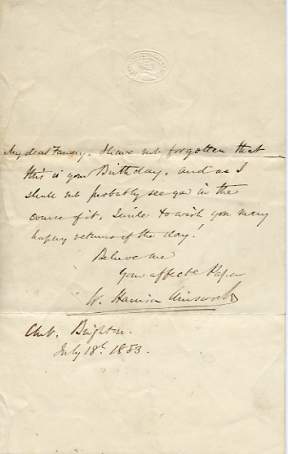 My dear Fanny. I have not forgotten that
this is your Birthday, and as I
shall not probably see you in the
course of it, I write to wish you many
happy returns of the day!
Believe me
Your affecte Papa
W. Harrison Ainsworth
Club. Brighton.
July 18th 1853.